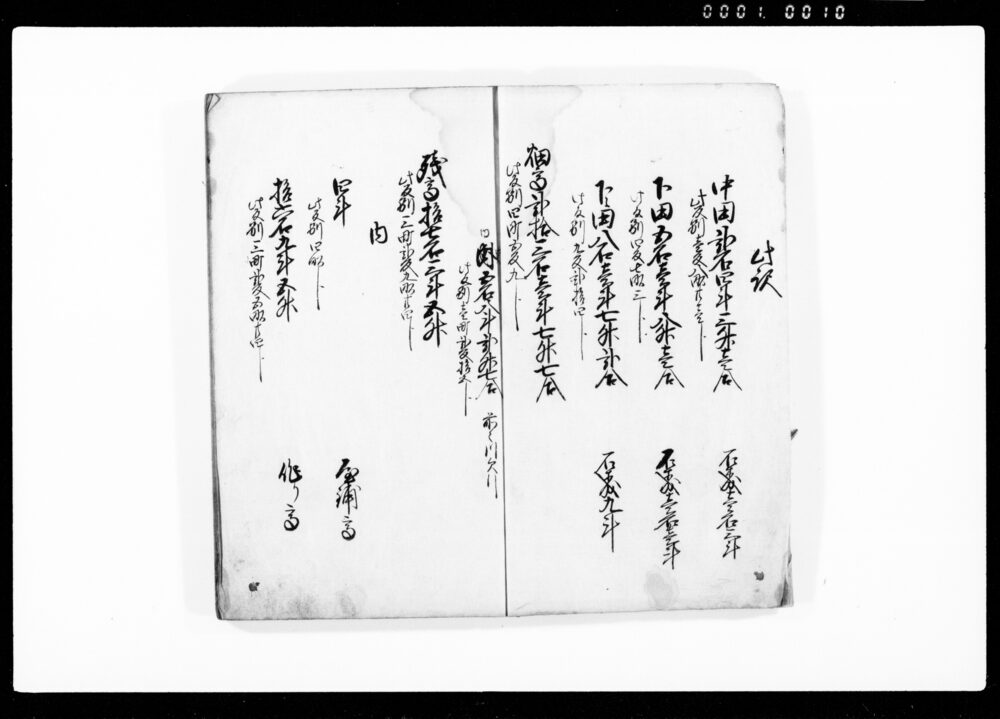 0001. 0010
此訳
中田弐石四斗三升壱合 石盛壱石三斗
此反別壱反八畝廿壱歩
下田五石壱斗八升壱合 石盛壱石壱斗
此反別四反七畝三歩
下々田八石壱斗七升弐合 石盛九斗
此反別九反弐拾四歩
畑高弐拾三石壱斗七升七合
此反別四町壱反九歩
内 五石八斗弐升七合 前々川欠引
此反別壱町拾五歩
残高拾七石三斗五升
此反別三町弐反九畝廿四歩
内
四斗 屋舗高
此反別四畝歩
拾六石九斗五升 作り高
此反別三町弐反五畝廿四歩